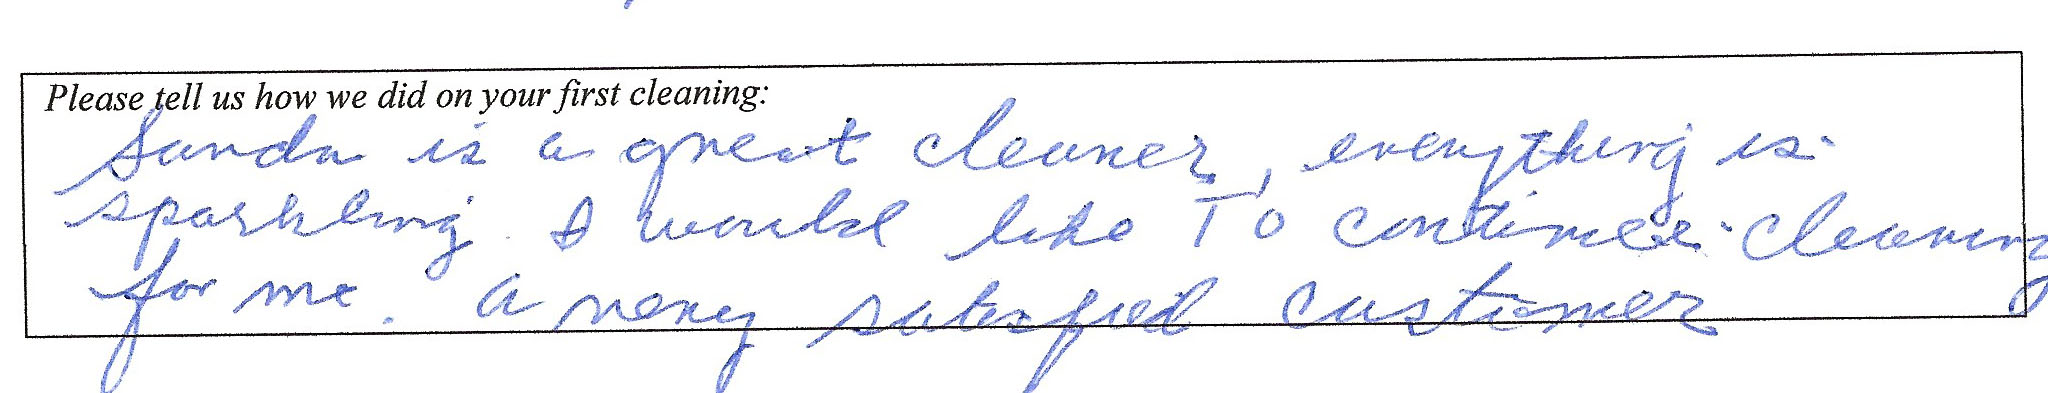 Please tell us how we did on your first cleaning:
Sanda is a great cleaner, everything is
sparkling. I would like To continue cleaning
for me. a very satisfied customer